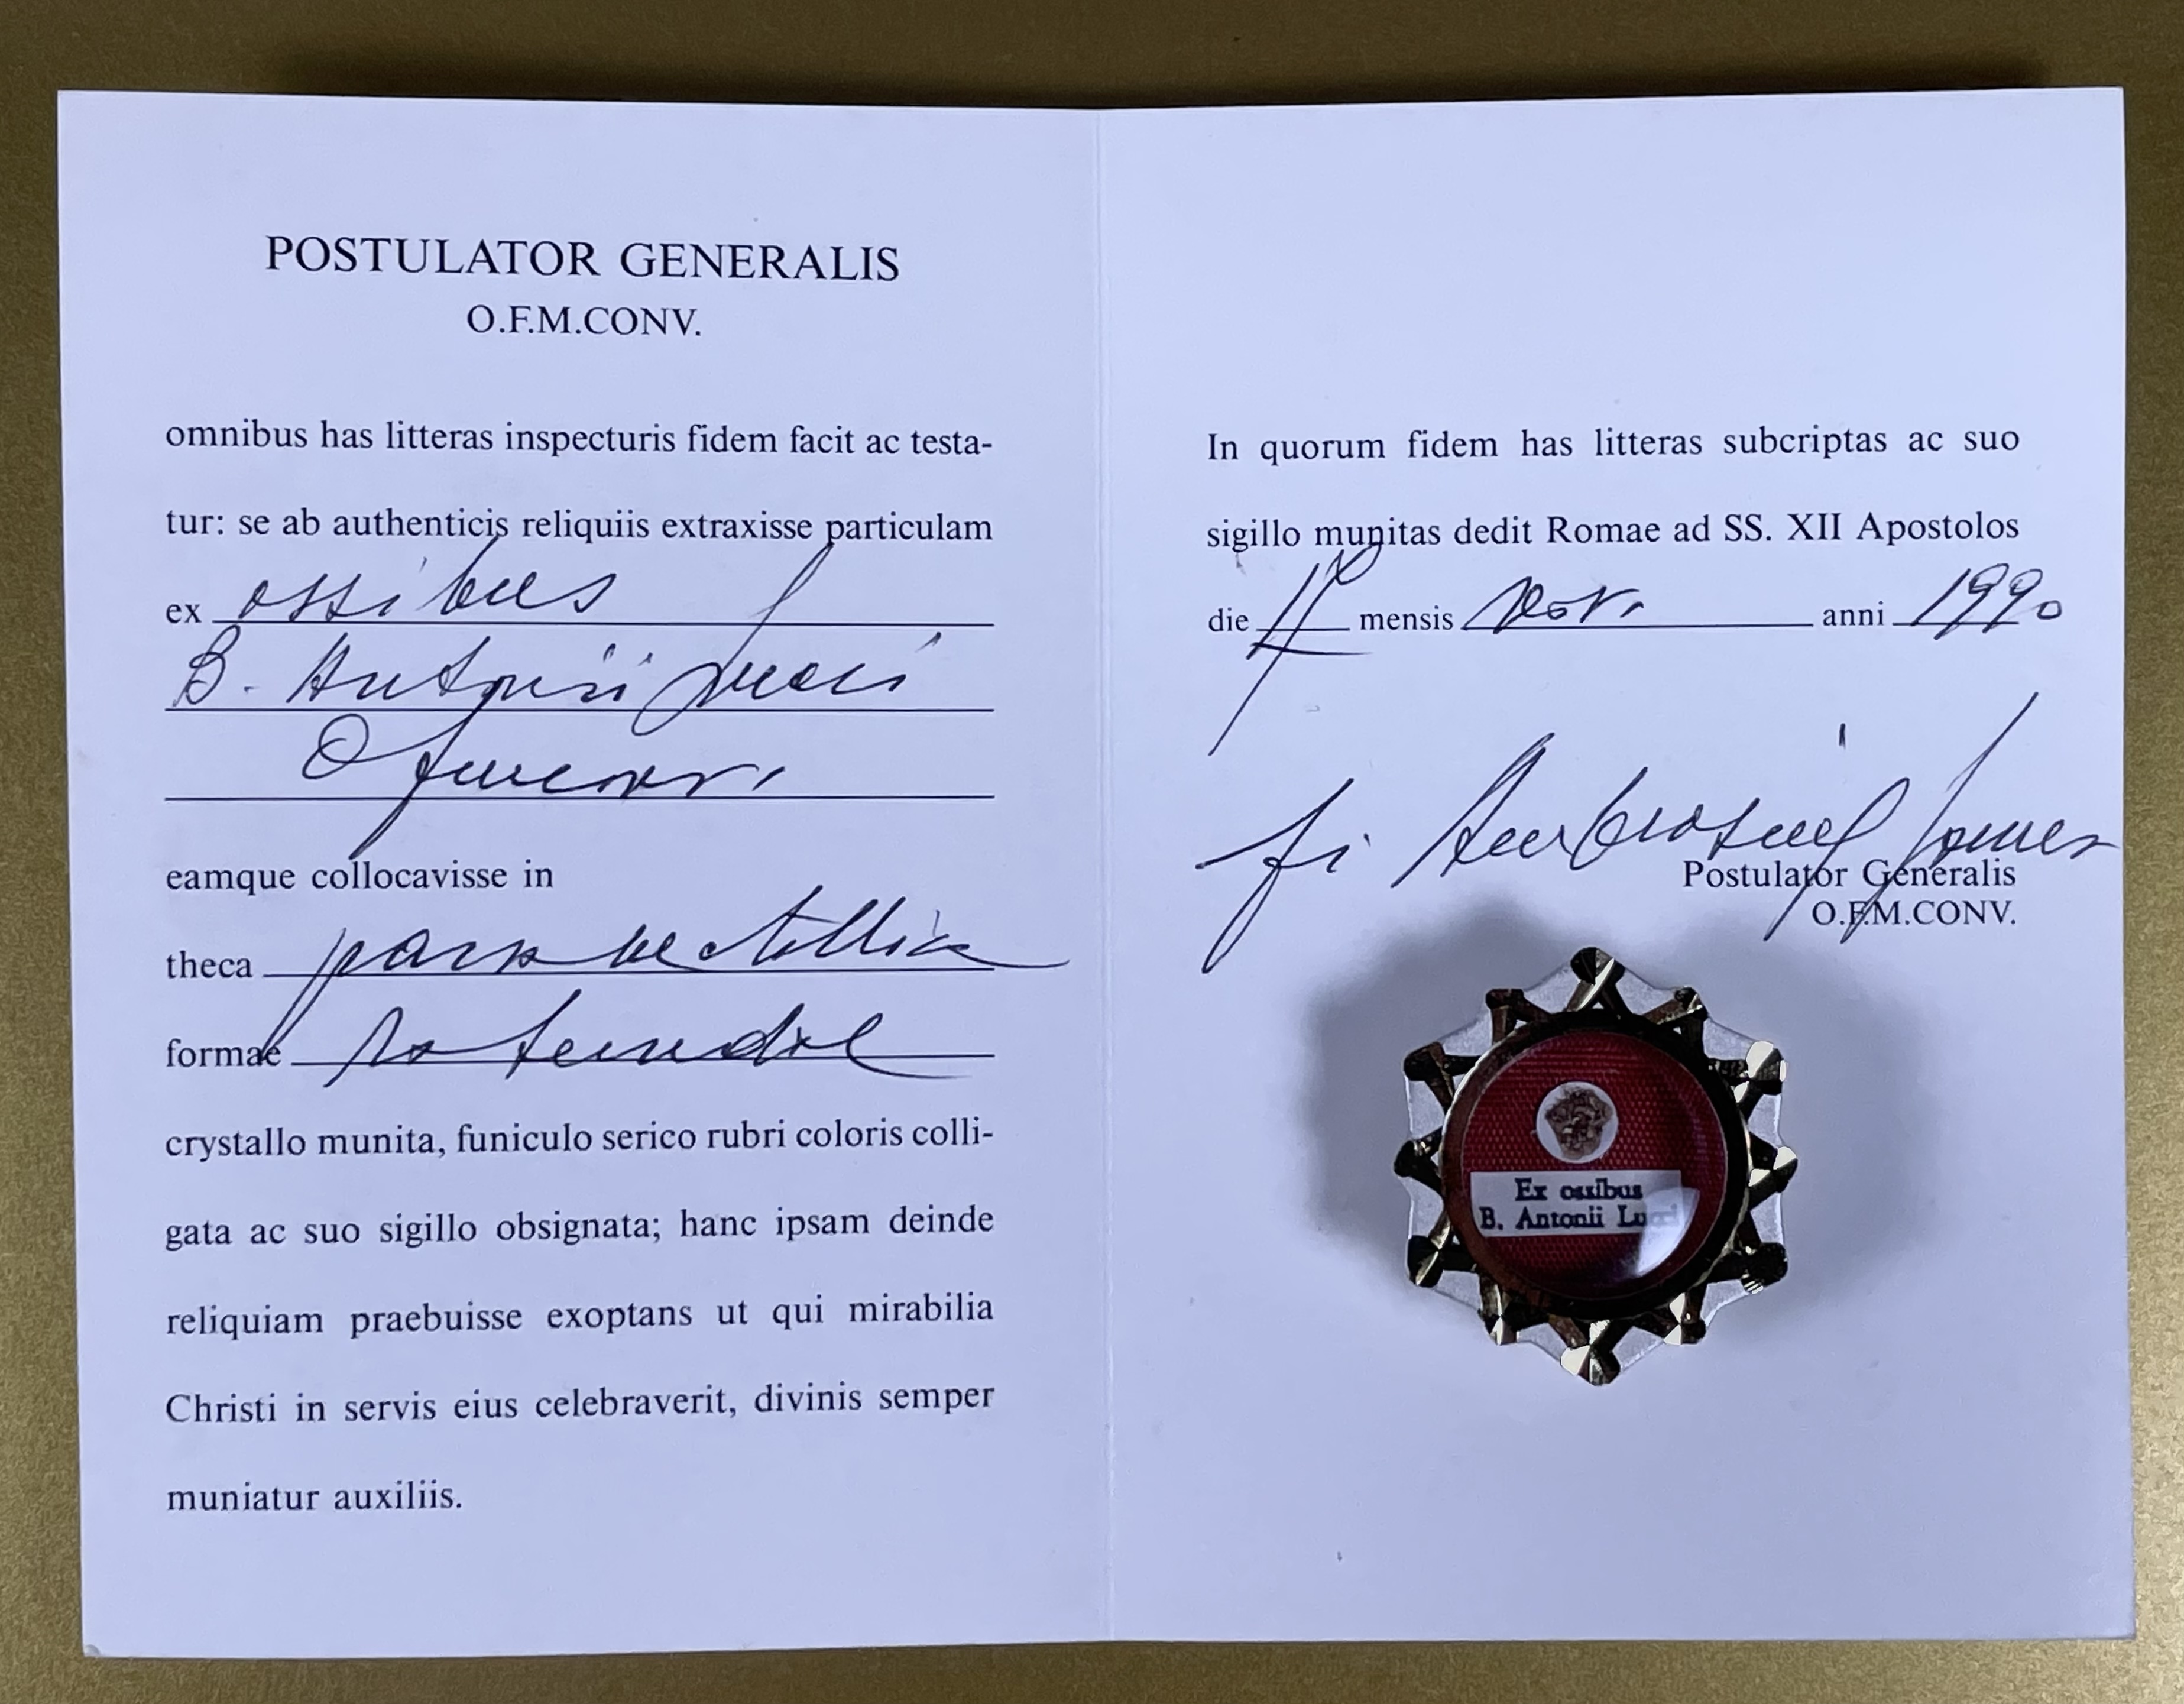 POSTULATOR GENERALIS
O.F.M.CONV.
omnibus has litteras inspecturis fidem facit ac testa-
tur: se ab authenticis reliquiis extraxisse particulam
ex ossibus
B. Antonii Lucci
eamque collocavisse in
theca parva metallica
formae rotundae
crystallo munita, funiculo serico rubri coloris colli-
gata ac suo sigillo obsignata; hanc ipsam deinde
reliquiam praebuisse exoptans ut qui mirabilia
Christi in servis eius celebraverit, divinis semper
muniatur auxiliis.
In quorum fidem has litteras subcriptas ac suo
sigillo munitas dedit Romae ad SS. XII Apostolos
die mensis Nov. anni 1990
Postulator Generalis
O.F.M.CONV.
Ex ossibus
B. Antonii Lucci